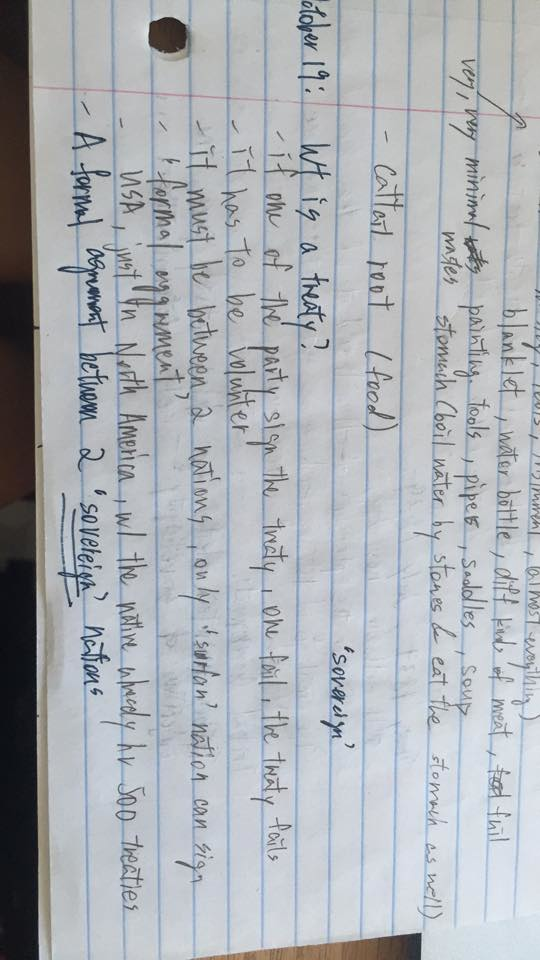 tools, instrument, almost everything)
blanklet, water bottle, diff kinds of meat, fuil
very, very minimal painting tools, pipes, saddles, soup
stomach (boil water by stones & eat the stomach as well)
- cattail root (food)
October 19: Wt is a treaty?
"sovereign"
- if one of the party sign the treaty, one fail, the treaty fails
- it has to be volunter
- it must be between 2 nations, only nation can sign
- "formal aggrement"
- USA, just in North America, w/ the native already hv 500 treaties
- A formal agrement between 2 "sovereign" nations